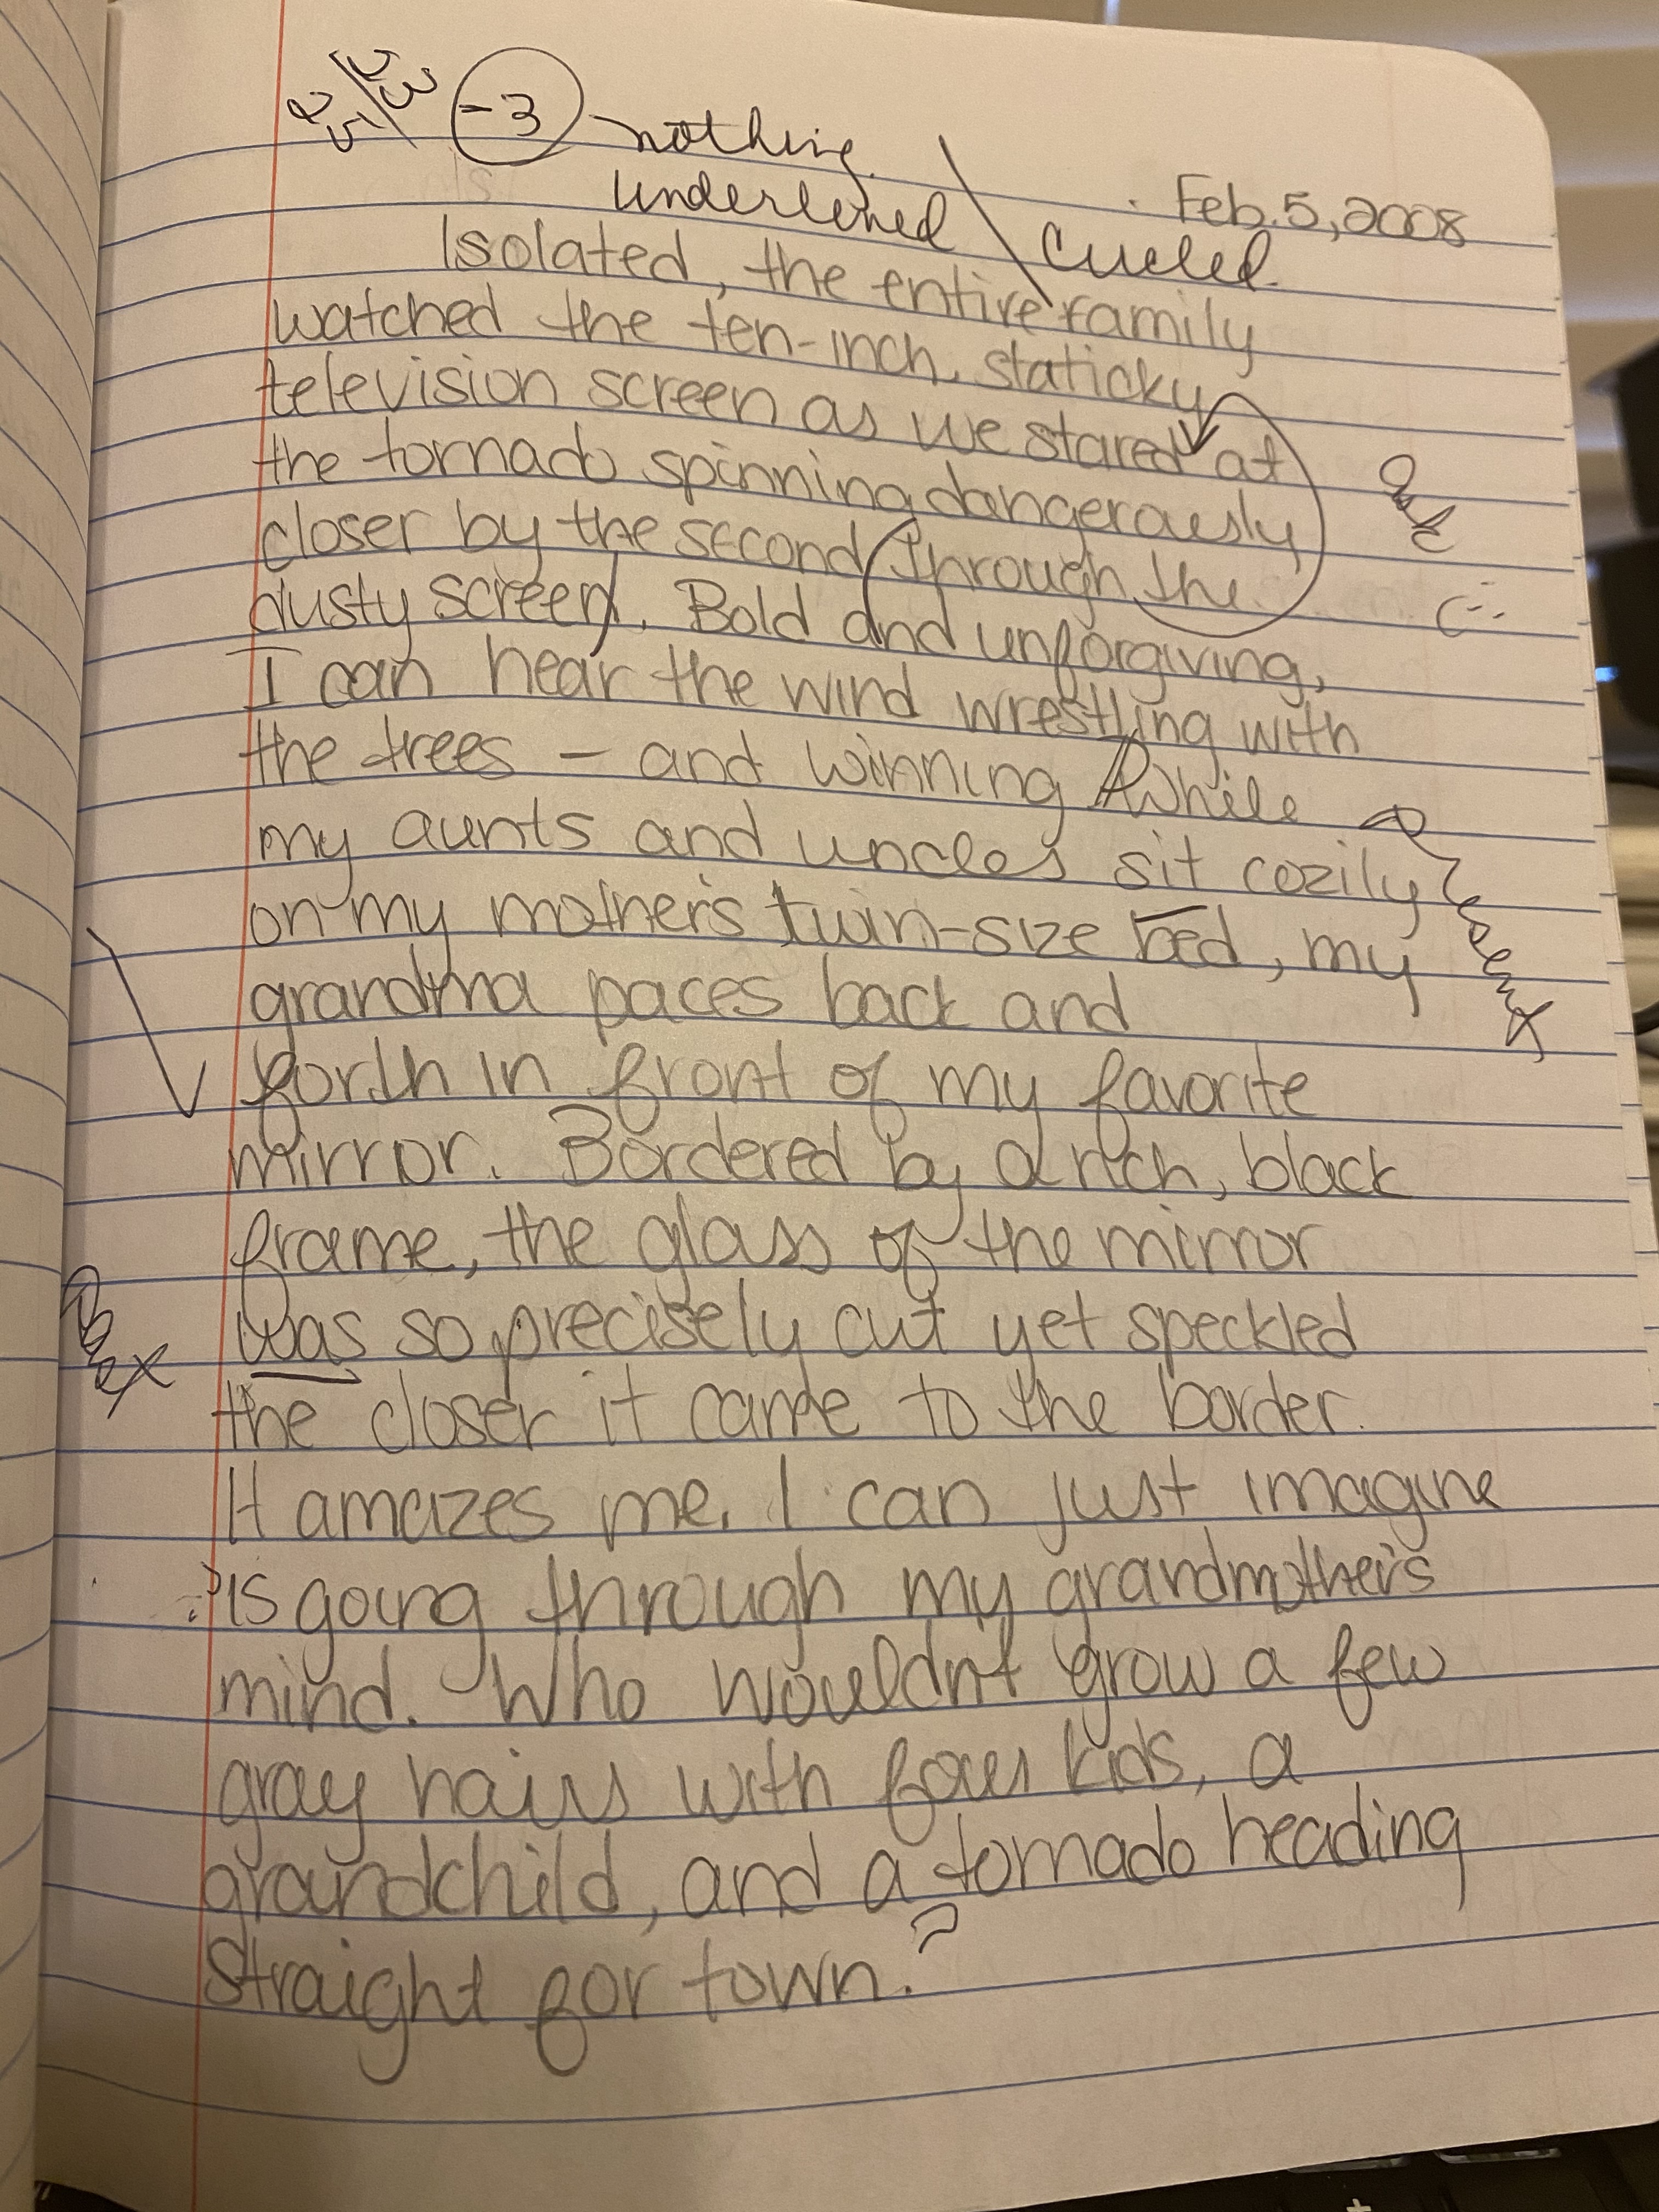 -3 nothing
underlined \ circled.
Feb. 5, 2008
Isolated, the entire family
watched the ten-inch, staticky
television screen as we stared at
the tornado spinning dangerously
closer by the second (through the
dusty screen). Bold and unforgiving,
I can hear the wind wrestling with
the trees – and winning. While
my aunts and uncles sit cozily
on my mother's twin-size bed, my
grandma paces back and
forth in front of my favorite
mirror. Bordered by a rich, black
frame, the glass of the mirror
was so precisely cut yet speckled
the closer it came to the border.
It amazes me. I can just imagine
? is going through my grandmother's
mind. Who wouldn't grow a few
gray hairs with four kids, a
grandchild, and a tornado heading
straight for town.?
Present